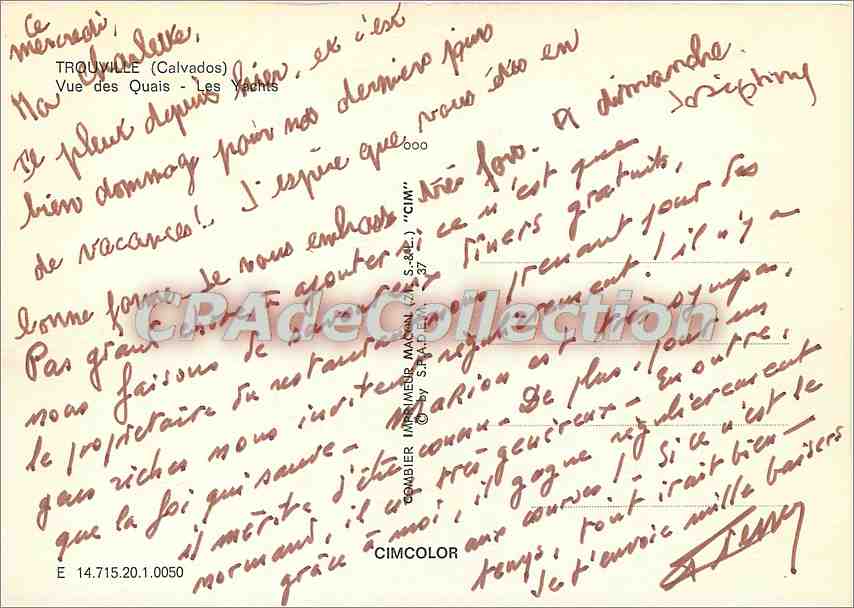 Ce
mercredi,
Ma Charlette,
TROUVILLE (Calvados)
Vue des Quais - Les Yachts
Il pleut depuis hier, et c'est
bien dommage pour nos derniers jours
de vacances! J'espère que vous êtes en
bonne forme. Je vous embrasse très fort. A dimanche.
Joséphine
Pas grand chose à ajouter si ce n'est que
nous faisons de savoureux dîners gratuits,
le propriétaire du restaurant nous prenant pour des
gens riches nous invite régulièrement! il n'y a
que la foi qui sauve - Marion est très sympa,
il mérite d'être connu - De plus, pour un
normand, il est très généreux - En outre,
grâce à moi, il gagne régulièrement
aux courses! Si ce n'est le
temps, tout irait bien -
Je t'envoie mille baisers
COMBIER IMPRIMEUR MACON (71. S.-&-L.) "CIM"
© by S.P.A.D.E.M. 37
CPAdeCollection
CIMCOLOR
E 14.715.20.1.0050